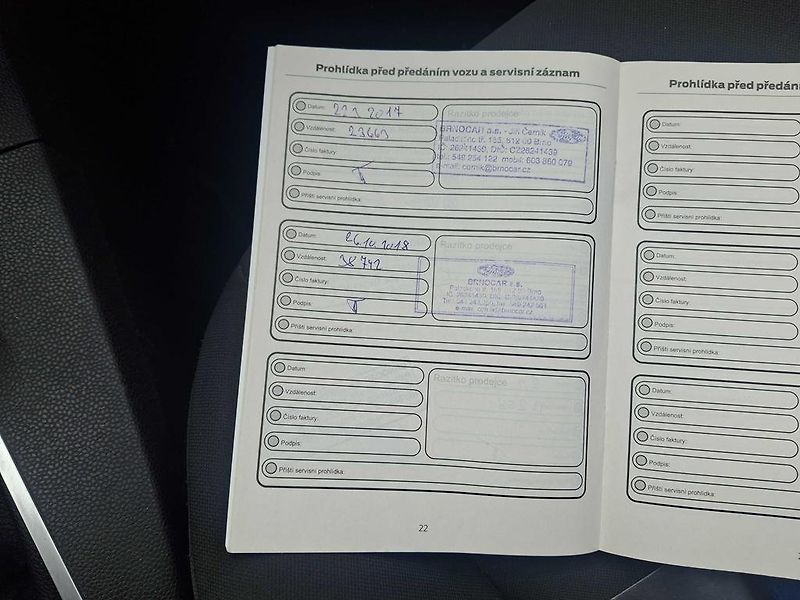 Prohlídka před předáním vozu a servisní záznam
Datum: 2017
Vzdálenost: 23663
Číslo faktury:
Podpis:
Příští servisní prohlídka:
Razítko prodejce
BRNOCAR a.s. - Jiří Černík
Palackého tř. 155, 612 00 Brno
IČ: 26241439, DIČ: CZ26241439
tel.: 549 254 122 mobil: 603 860 079
e-mail: cernik@brnocar.cz
Datum: 26.10.2018
Vzdálenost: 38742
Číslo faktury:
Podpis:
Příští servisní prohlídka:
Razítko prodejce
BRNOCAR a.s.
Datum:
Vzdálenost:
Číslo faktury:
Podpis:
Příští servisní prohlídka:
Razítko prodejce
22
Prohlídka před předán
Datum:
Vzdálenost:
Číslo faktury:
Podpis:
Příští servisní prohlídka:
Datum:
Vzdálenost:
Číslo faktury:
Podpis:
Příští servisní prohlídka:
Datum:
Vzdálenost:
Číslo faktury:
Podpis:
Příští servisní prohlídka: